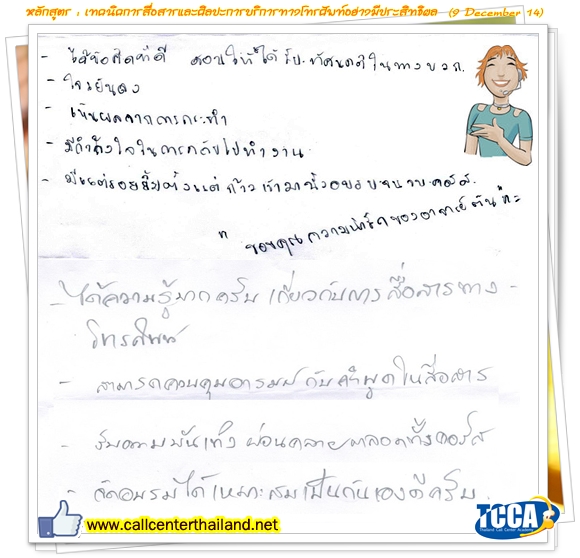 หลักสูตร : เทคนิคการสื่อสารและศิลปะการบริการทางโทรศัพท์อย่างมีประสิทธิผล (9 December 14)
- ได้ข้อคิดที่ดี สอนให้ได้รับทัศนคติในทางบวก.
- ใจเย็นลง
- เห็นผลจากการกระทำ
- มีกำลังใจในการกลับไปทำงาน.
- มีแต่รอยยิ้มตั้งแต่ก้าวเข้ามานั่งอบรมจนจบคอร์ส.
" ขอบคุณความน่ารักของอาจารย์ต้น "ค่ะ
- ได้ความรู้มากครับ เกี่ยวกับการสื่อสารทาง -
โทรศัพท์
- สามารถควบคุมอารมณ์ กับคำพูดในสื่อสาร
- รับความบันเทิง ผ่อนคลายตลอดทั้งคอร์ส
- จัดอบรมได้เหมาะสมเป็นกันเองดีครับ.
www.callcenterthailand.net
TCCA
Thailand Call Center Academy